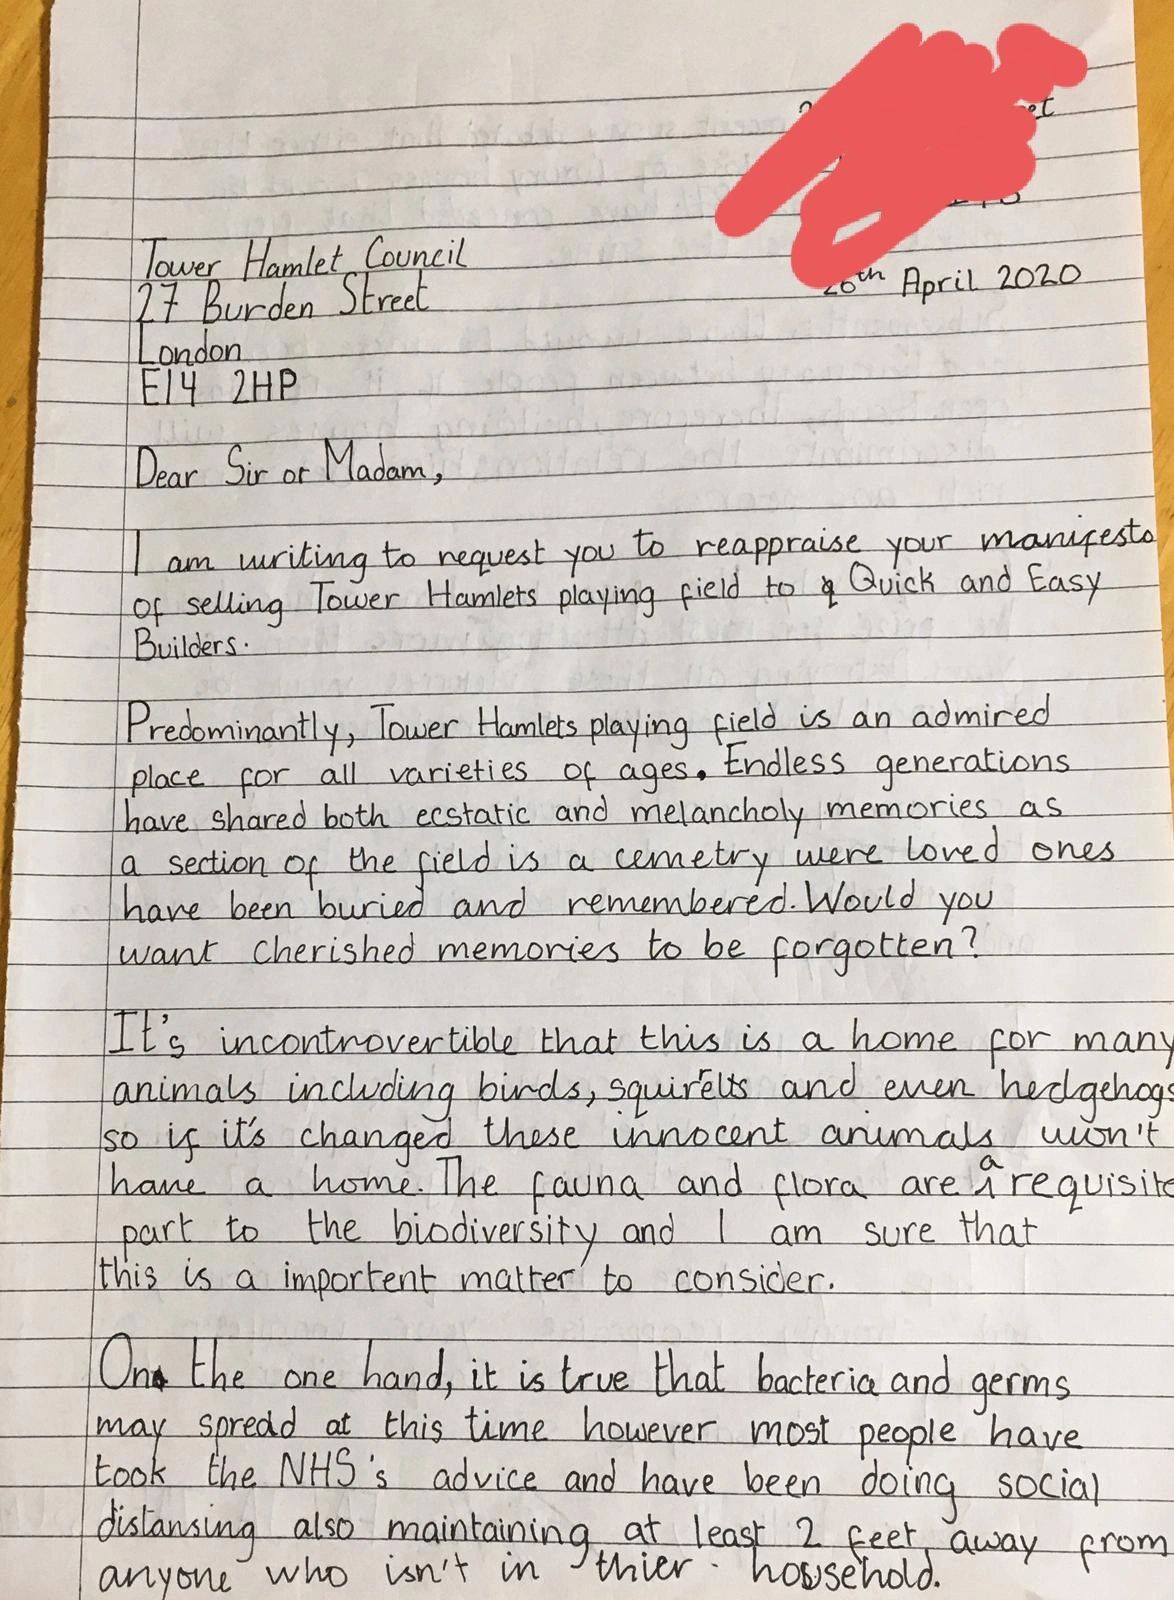 th April 2020
Tower Hamlet Council
27 Burden Street
London
E14 2HP
Dear Sir or Madam,
I am writing to request you to reappraise your manifesto
of selling Tower Hamlets playing field to Quick and Easy
Builders.
Predominantly, Tower Hamlets playing field is an admired
place for all varieties of ages. Endless generations
have shared both ecstatic and melancholy memories as
a section of the field is a cemetry were loved ones
have been buried and remembered. Would you
want cherished memories to be forgotten?
It's incontrovertible that this is a home for many
animals including birds, squirrelts and even hedgehogs
so if it's changed these innocent animals won't
have a home. The fauna and flora are a requisite
part to the biodiversity and I am sure that
this is a importent matter to consider.
On the one hand, it is true that bacteria and germs
may spredd at this time however most people have
took the NHS's advice and have been doing social
distansing also maintaining at least 2 feet away from
anyone who isn't in thier household.